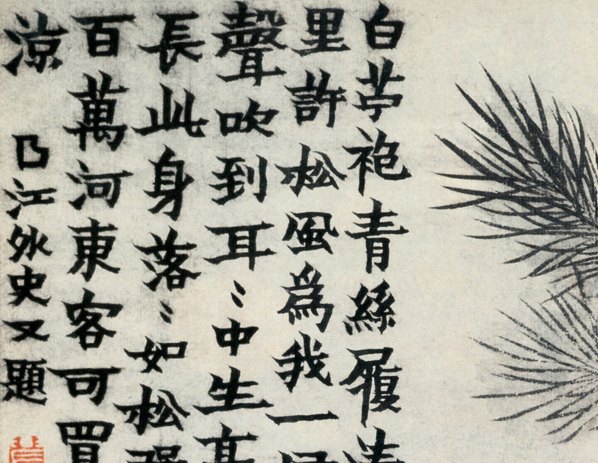 白苧袍青絲履
里許松風爲我一
聲吹到耳〻中生
長此身落〻如松
百萬河東客可買
涼
曲江外史又題